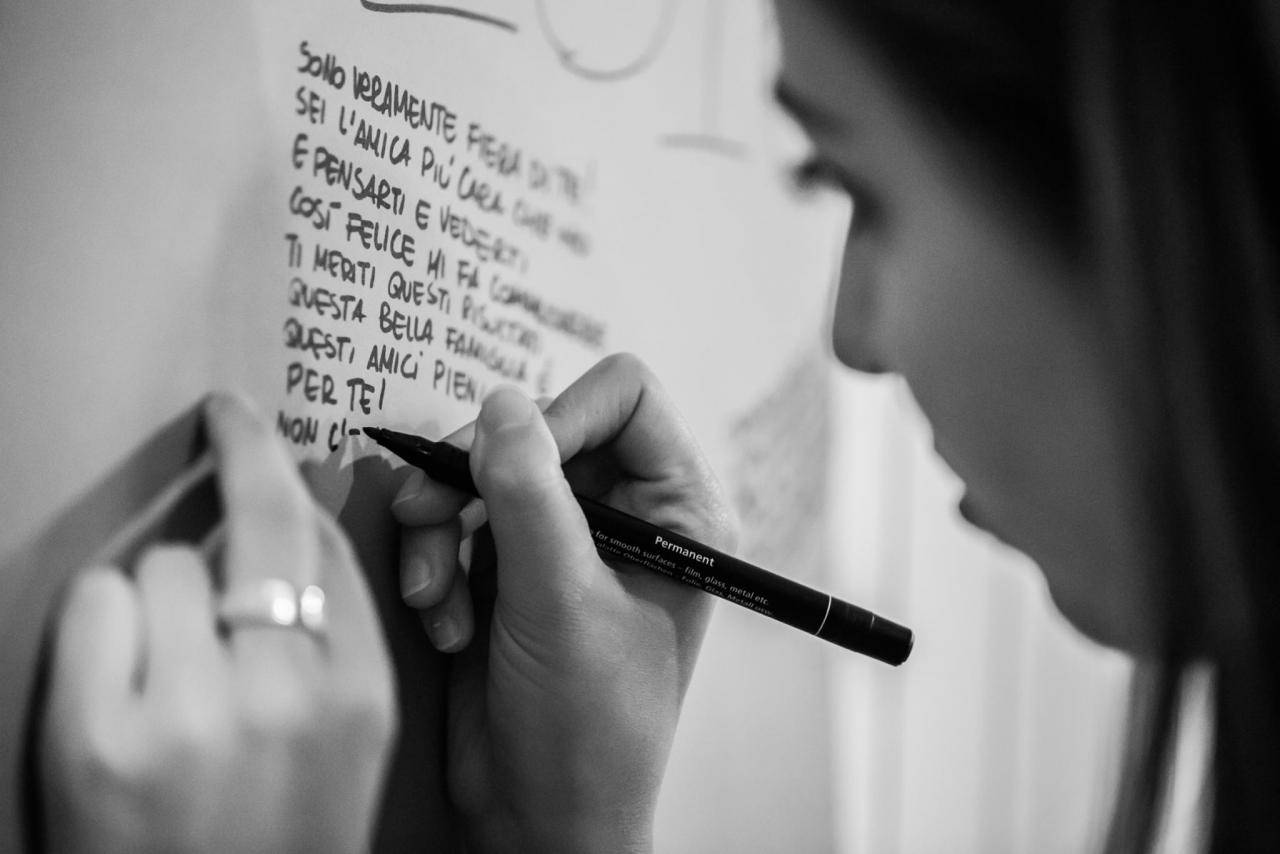 SONO VERAMENTE FIERA DI TE!
SEI L'AMICA PIÙ CARA CHE HO
E PENSARTI E VEDERTI
COSÍ FELICE MI FA COMMUOVERE
TI MERITI QUESTI RISULTATI
QUESTA BELLA FAMIGLIA E
QUESTI AMICI PIENI
PER TE!
NON C'
Permanent
for smooth surfaces - film, glass, metal etc.
glatte Oberflächen - Folie, Glas, Metall usw.